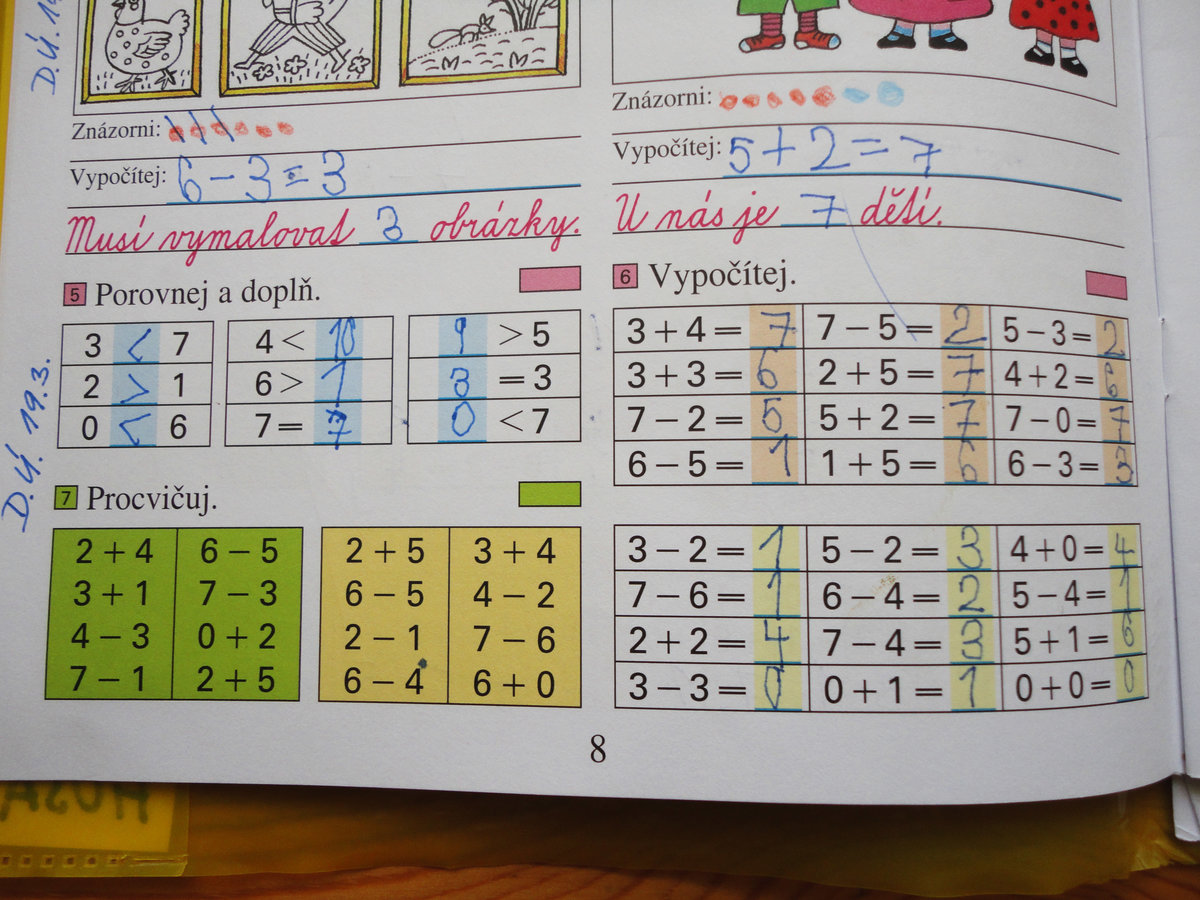 D.Ú. 19
Znázorni:
Vypočítej: 6 - 3 = 3
Musí vymalovat 3 obrázky.
Znázorni:
Vypočítej: 5 + 2 = 7
U nás je 7 dětí.
D.Ú. 19.3.
5 Porovnej a doplň.
3 < 7 4 < 10 9 > 5
2 > 1 6 > 1 3 = 3
0 < 6 7 = 7 0 < 7
6 Vypočítej.
3 + 4 = 7 7 - 5 = 2 5 - 3 = 2
3 + 3 = 6 2 + 5 = 7 4 + 2 = 6
7 - 2 = 5 5 + 2 = 7 7 - 0 = 7
6 - 5 = 1 1 + 5 = 6 6 - 3 = 3
7 Procvičuj.
2 + 4 6 - 5 2 + 5 3 + 4
3 + 1 7 - 3 6 - 5 4 - 2
4 - 3 0 + 2 2 - 1 7 - 6
7 - 1 2 + 5 6 - 4 6 + 0
3 - 2 = 1 5 - 2 = 3 4 + 0 = 4
7 - 6 = 1 6 - 4 = 2 5 - 4 = 1
2 + 2 = 4 7 - 4 = 3 5 + 1 = 6
3 - 3 = 0 0 + 1 = 1 0 + 0 = 0
8